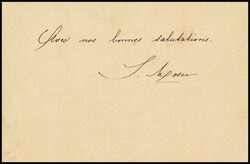 Avec nos bonnes salutations.
S. Moser